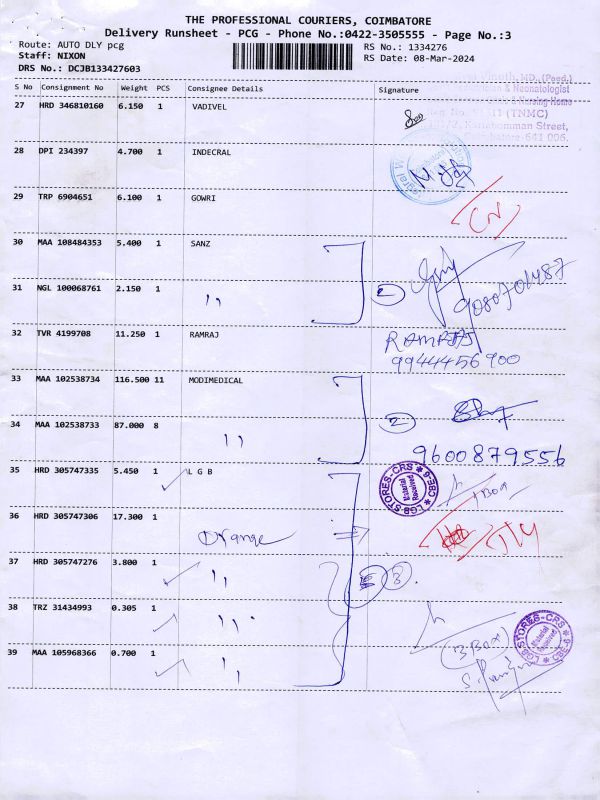 THE PROFESSIONAL COURIERS, COIMBATORE
Delivery Runsheet - PCG - Phone No.:0422-3505555 - Page No.:3
Route: AUTO DLY pcg RS No.: 1334276
Staff: NIXON RS Date: 08-Mar-2024
DRS No.: DCJB133427603
S No Consignment No Weight PCS Consignee Details Signature
27 HRD 346810160 6.150 1 VADIVEL
(TNMC)
Kattabomman Street,
641 006.
28 DPI 234397 4.700 1 INDECRAL
29 TRP 6904651 6.100 1 GOWRI
30 MAA 108484353 5.400 1 SANZ
31 NGL 100068761 2.150 1 " 2
32 TVR 4199708 11.250 1 RAMRAJ RAMRAJ
9944456900
33 MAA 102538734 116.500 11 MODIMEDICAL
34 MAA 102538733 87.000 8 " 2
9600879556
35 HRD 305747335 5.450 1 L G B
LGB STORES-CRS CBE-6
Material Received
1 Box
36 HRD 305747306 17.300 1 Orange
37 HRD 305747276 3.800 1 " 3
38 TRZ 31434993 0.305 1 "
LGB STORES-CRS CBE-6
Material Received
3 Box
39 MAA 105968366 0.700 1 "